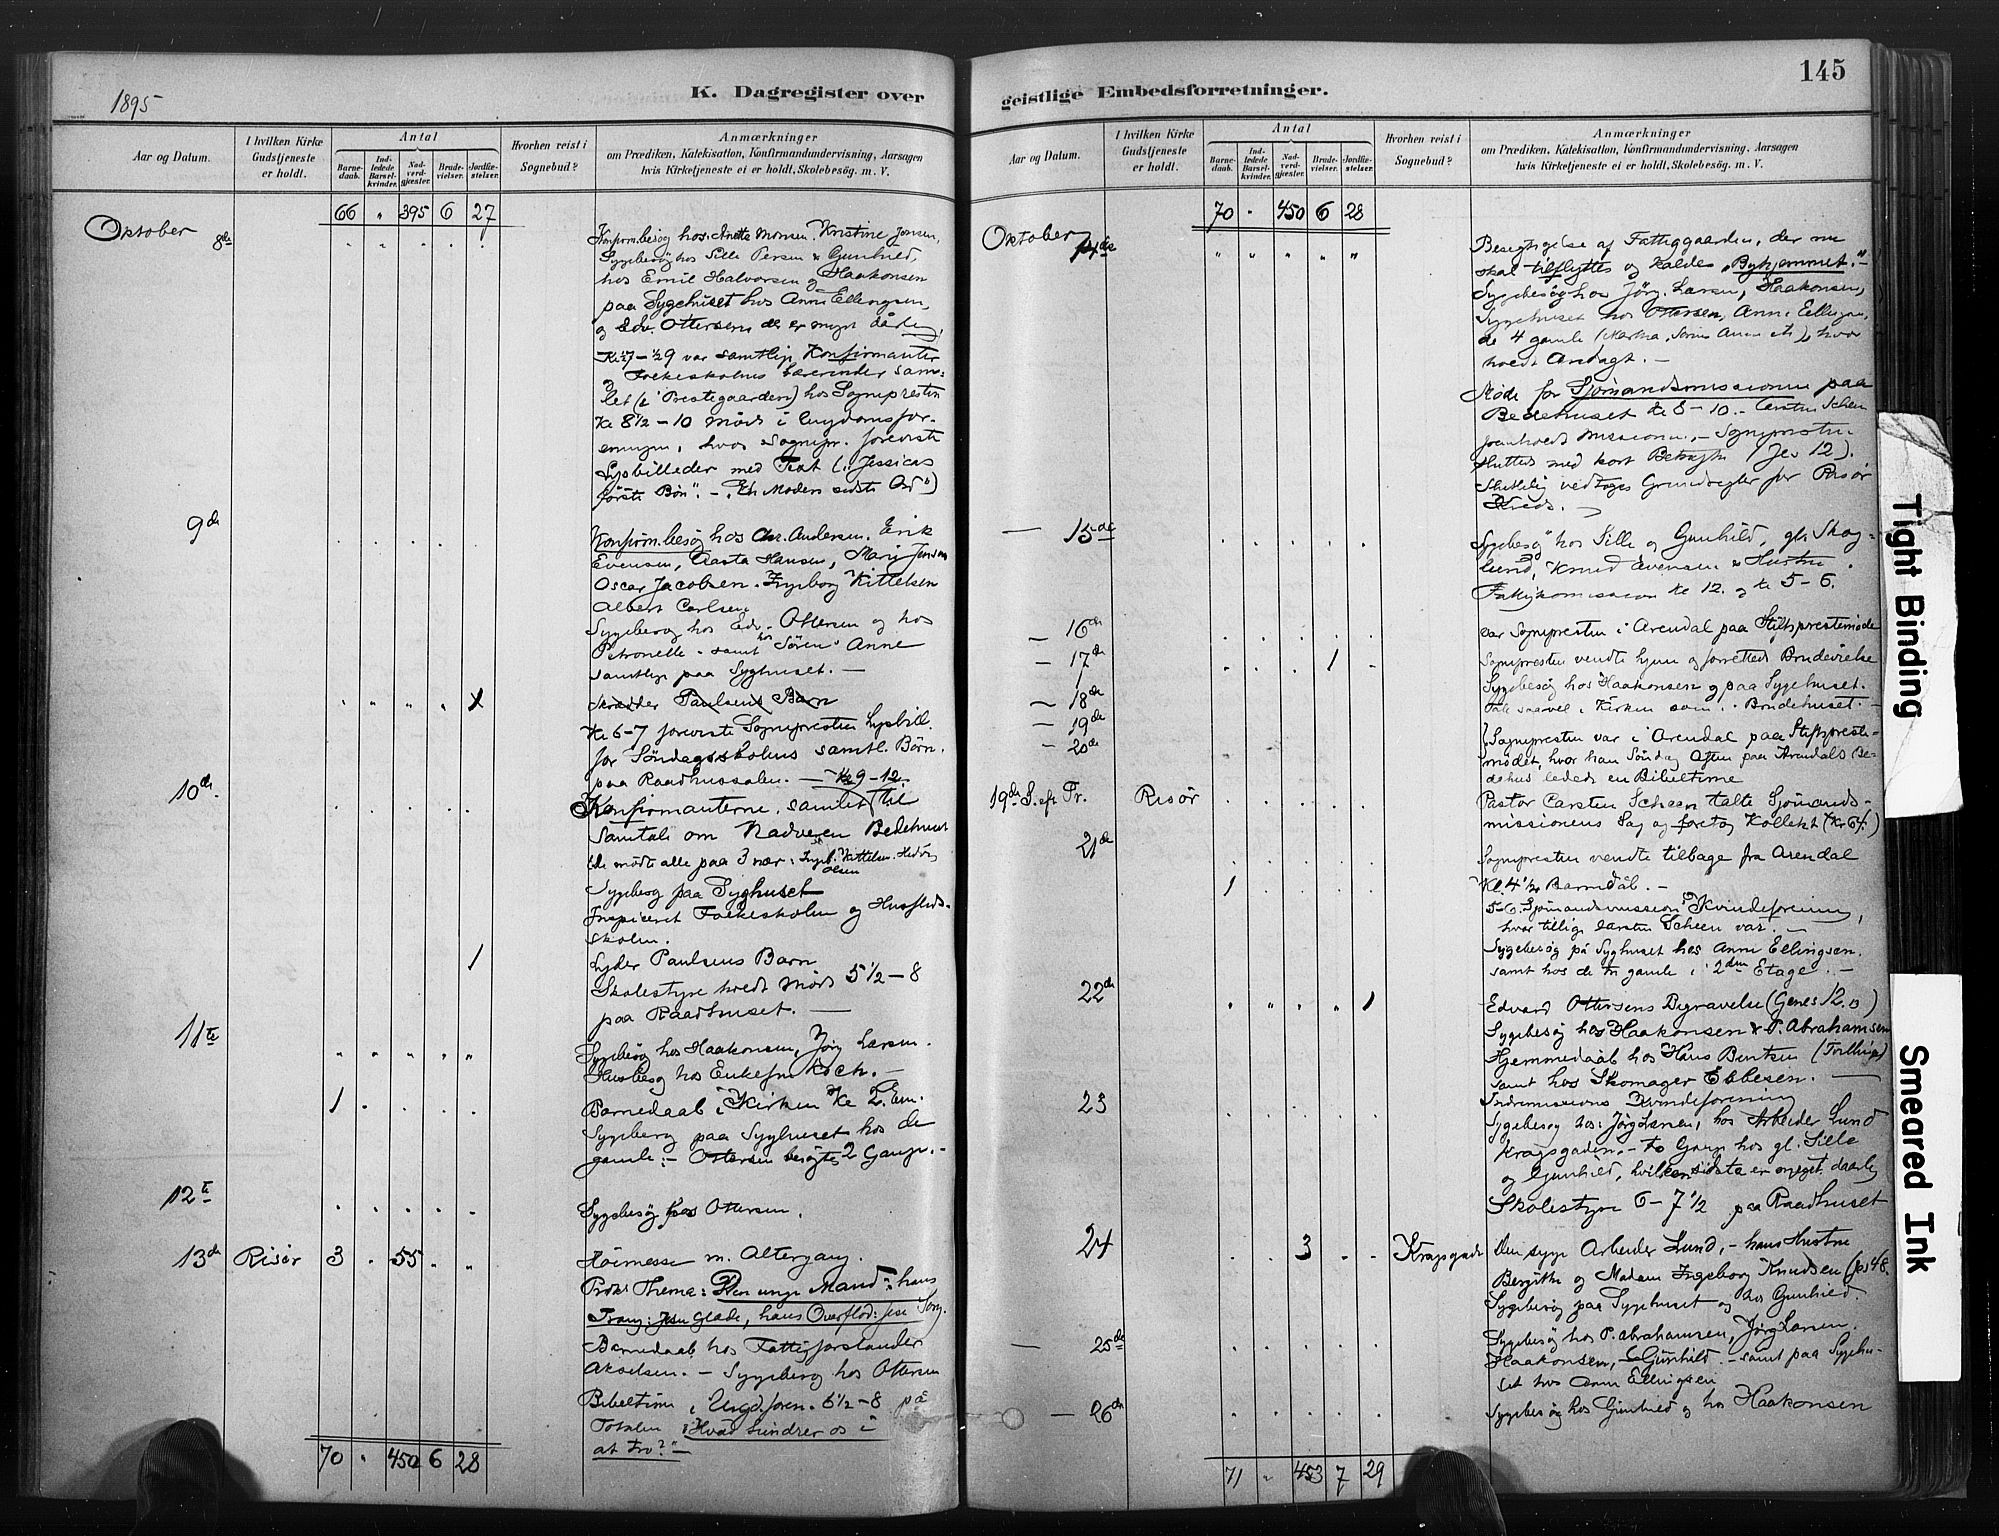 1895
K. Dagregister over
Aar og Datum.
I hvilken Kirke Gudstjeneste er holdt.
Antal
Barnedaab.
Indledede Barselkvinder.
Nadverdgjester.
Brudevielser.
Jordfæstelser.
Hvorhen reist i Sognebud?
Anmærkninger
om Prædiken, Katekisation, Konfirmandundervisning, Aarsagen
hvis Kirketjeneste ei er holdt, Skolebesøg. m. V.
66 " 395 6 27
Oktober 8de
Konfirm.besøg hos Anette Monsen. Kristine Jensen,
Sygebesøg hos Sille Persen & Gunhild,
hos Emil Halvorsen og Haakonsen
paa Sygehuset hos Anne Ellingsen
og Edv. Ottersen der er meget dårlig.
var samtlige Konfirmanter
Folkeskolens Lærerinder sam-
let (i Prestegaarden) hos Sognepresten
Kl 8 1/2 - 10 Møde i Ungdomsfor-
eningen, hvor Sognepr. foreviste
Lysbilleder med Text (: Jessicas
første Bøn". - "En Moders sidste Ord")
9de
Konfirm.besøg hos Chr. Andersen. Erik
Evensen, Aasta Hansen, Marie Jensen
Oscar Jacobsen. Ingeborg Kittelsen
Albert Carlsen
Sygebesøg hos Edv. Ottersen og hos
Petronelle - samt hos Søren Anne
samtlige paa Syghuset. -
Skrædder Paulsens Barn
Kl 6-7 foreviste Sognepresten Lysbill.
for Søndagsskolens samtl. Børn.
paa Raadhussalen. -
10de
9-12.
Konfirmanterne samlet til
Samtale om Nadveren Bedehuset
de mødte alle paa 3 nær: Ingeb. Kittelsen. Hedvig
Olsen
Sygebesøg paa Syghuset
Inspiceret Folkeskolen og Husflids-
skolen.
1 Lyder Paulsens Barn
Skolestyre holdt Møde 5 1/2 - 8
paa Raadhuset. -
11te
Sygebesøg hos Haakonsen, Jørg Larsen.
Husbesøg hos Enkefru Koch. -
1 Barnedaab i Kirken Kl 2. Em.
Sygebesøg paa Syghuset hos de
gamle: - Ottersen besøgtes 2 Gange. -
12te
Sygebesøg hos Ottersen.
13de Risør 3 " 55
Høimesse m. Altergang.
Præk. Thema: Den unge Mand: hans
Trang: Jesu Glæde, hans Overflod: Jesu Sorg.
Barnedaab hos Fattigforstander
Akselsen. - Sygebesøg hos Ottersen
Bibeltime i Ungd.foren. 6 1/2 - 8 på
Totalen "Hvad hindrer os i
at tro?" -
70 " 450 6 28
145
geistlige Embedsforretninger.
Aar og Datum.
I hvilken Kirke Gudstjeneste er holdt.
Antal
Barnedaab.
Indledede Barselkvinder.
Nadverdgjester.
Brudevielser.
Jordfæstelser.
Hvorhen reist i Sognebud?
Anmærkninger
om Prædiken, Katekisation, Konfirmandundervisning, Aarsagen
hvis Kirketjeneste ei er holdt, Skolebesøg. m. V.
70 " 450 6 28
Oktober 14de
Besigtigelse af Fattiggaarden, der nu
skal tilflyttes og kaldes "Byhjemmet." -
Sygebesøg hos Jørg. Larsen, Haakonsen,
Sygehuset hos Ottersen, Anne Ellingsen,
de 4 gamle (Martha, Anne etc), hvor
holdt Andagt. -
Møde for Sjømandsmissionen paa
Bedehuset kl 8 - 10. - Carsten Scheen
Missionen. - Sognepresten
sluttede med kort Betragtn (Jes 12).
Sluttelig vedtages Grundregler for Risør
Kreds. -
15de
Sygebesøg hos Sille og Gunhild, gl. Skog-
lund, Knud Evensen & Hustru.
Fattigkommission kl 12. og kl 5-6.
16de
var Sognepresten i Arendal paa Stiftsprestemøde
17de 1
Sognepresten vendte hjem og forrettede Brudevielse
Sygebesøg hos Haakonsen og paa Sygehuset.
18de
Tale saavel i Kirken som i Brudehuset. -
19de
20de
Sognepresten var i Arendal paa Stiftspreste-
mødet, hvor han Søndag Aften paa Arendals Be-
dehus ledede en Bibeltime
19de S. eft. Tr. Risør
Pastor Carsten Scheen talte Sjømands-
missionens Sag og foretog Kollekt
21de
Sognepresten vendte tilbage fra Arendal
1 Kl. 4 1/2 Barnedåb. -
5-6. Sjømandsmission Kvindeforening,
hvor tillige Carsten Scheen var. -
Sygebesøg på Syghuset hos Anne Ellingsen.
samt hos de tre gamle i 2den Etage. -
22de 1
Edvard Ottersens Begravelse (Genes 12.)
Sygebesøg hos Haakonsen & P. Abrahamsen
Hjemmedaab hos Hans Berntsen (Tvillinge)
samt hos Skomager Ebbesen. -
23
Indremissions Kvindeforening
Sygebesøg hos: Jørg Larsen, hos Arbeider Lund
Kragsgaden. - to Gange hos gl. Sille
og Gunhild, hvilken sidste er meget daarlig
Skolestyre 6 - 7 1/2 paa Raadhuset
24 3 Kragsgade
Den syge Arbeider Lund, - hans Hustru
Bergithe og Madam Ingeborg Knudsen
Sygebesøg paa Sygehuset og hos Gunhild.
25de
Sygebesøg hos P. Abrahamsen, Jørg Larsen.
Haakonsen, Gunhild. - samt paa Sygehu-
set hos Anne Ellingsen
26de
Sygebesøg hos Gunhild og hos Haakonsen
71 " 453 7 29
Tight Binding
Smeared Ink